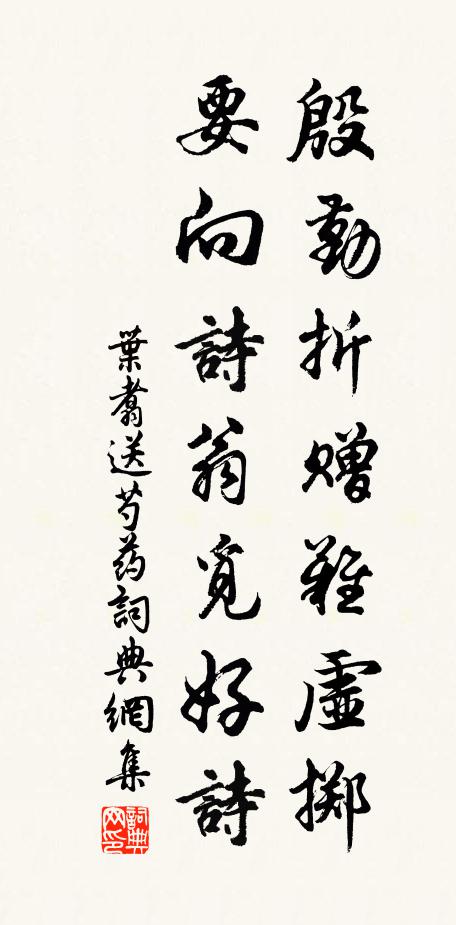 殷勤折赠難虛掷
要向詩翁覓好詩
葉翥送芍药詞典網集
詞典网印